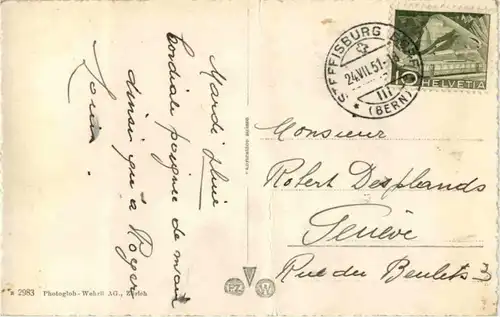 Mardi
Cordiale poignée de main
ainsi qu'à Roger
Louis.
R 2983 Photoglob-Wehrli AG., Zürich
STEFFISBURG
24.VII.51
III
(BERN)
10
HELVETIA
Monsieur
Robert Desplands
Genève
Rue du Beulet 3
PZ